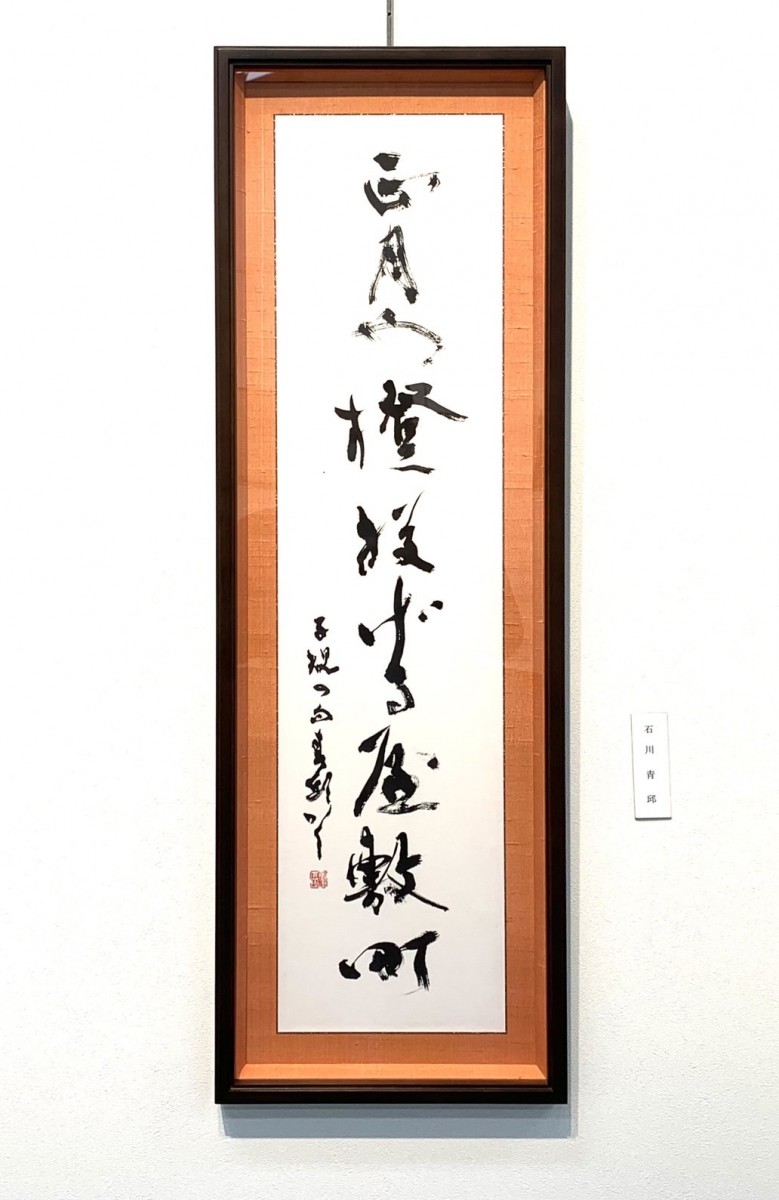 正月や橙投げる屋敷町
子規の句 青邱かく
石川青邱